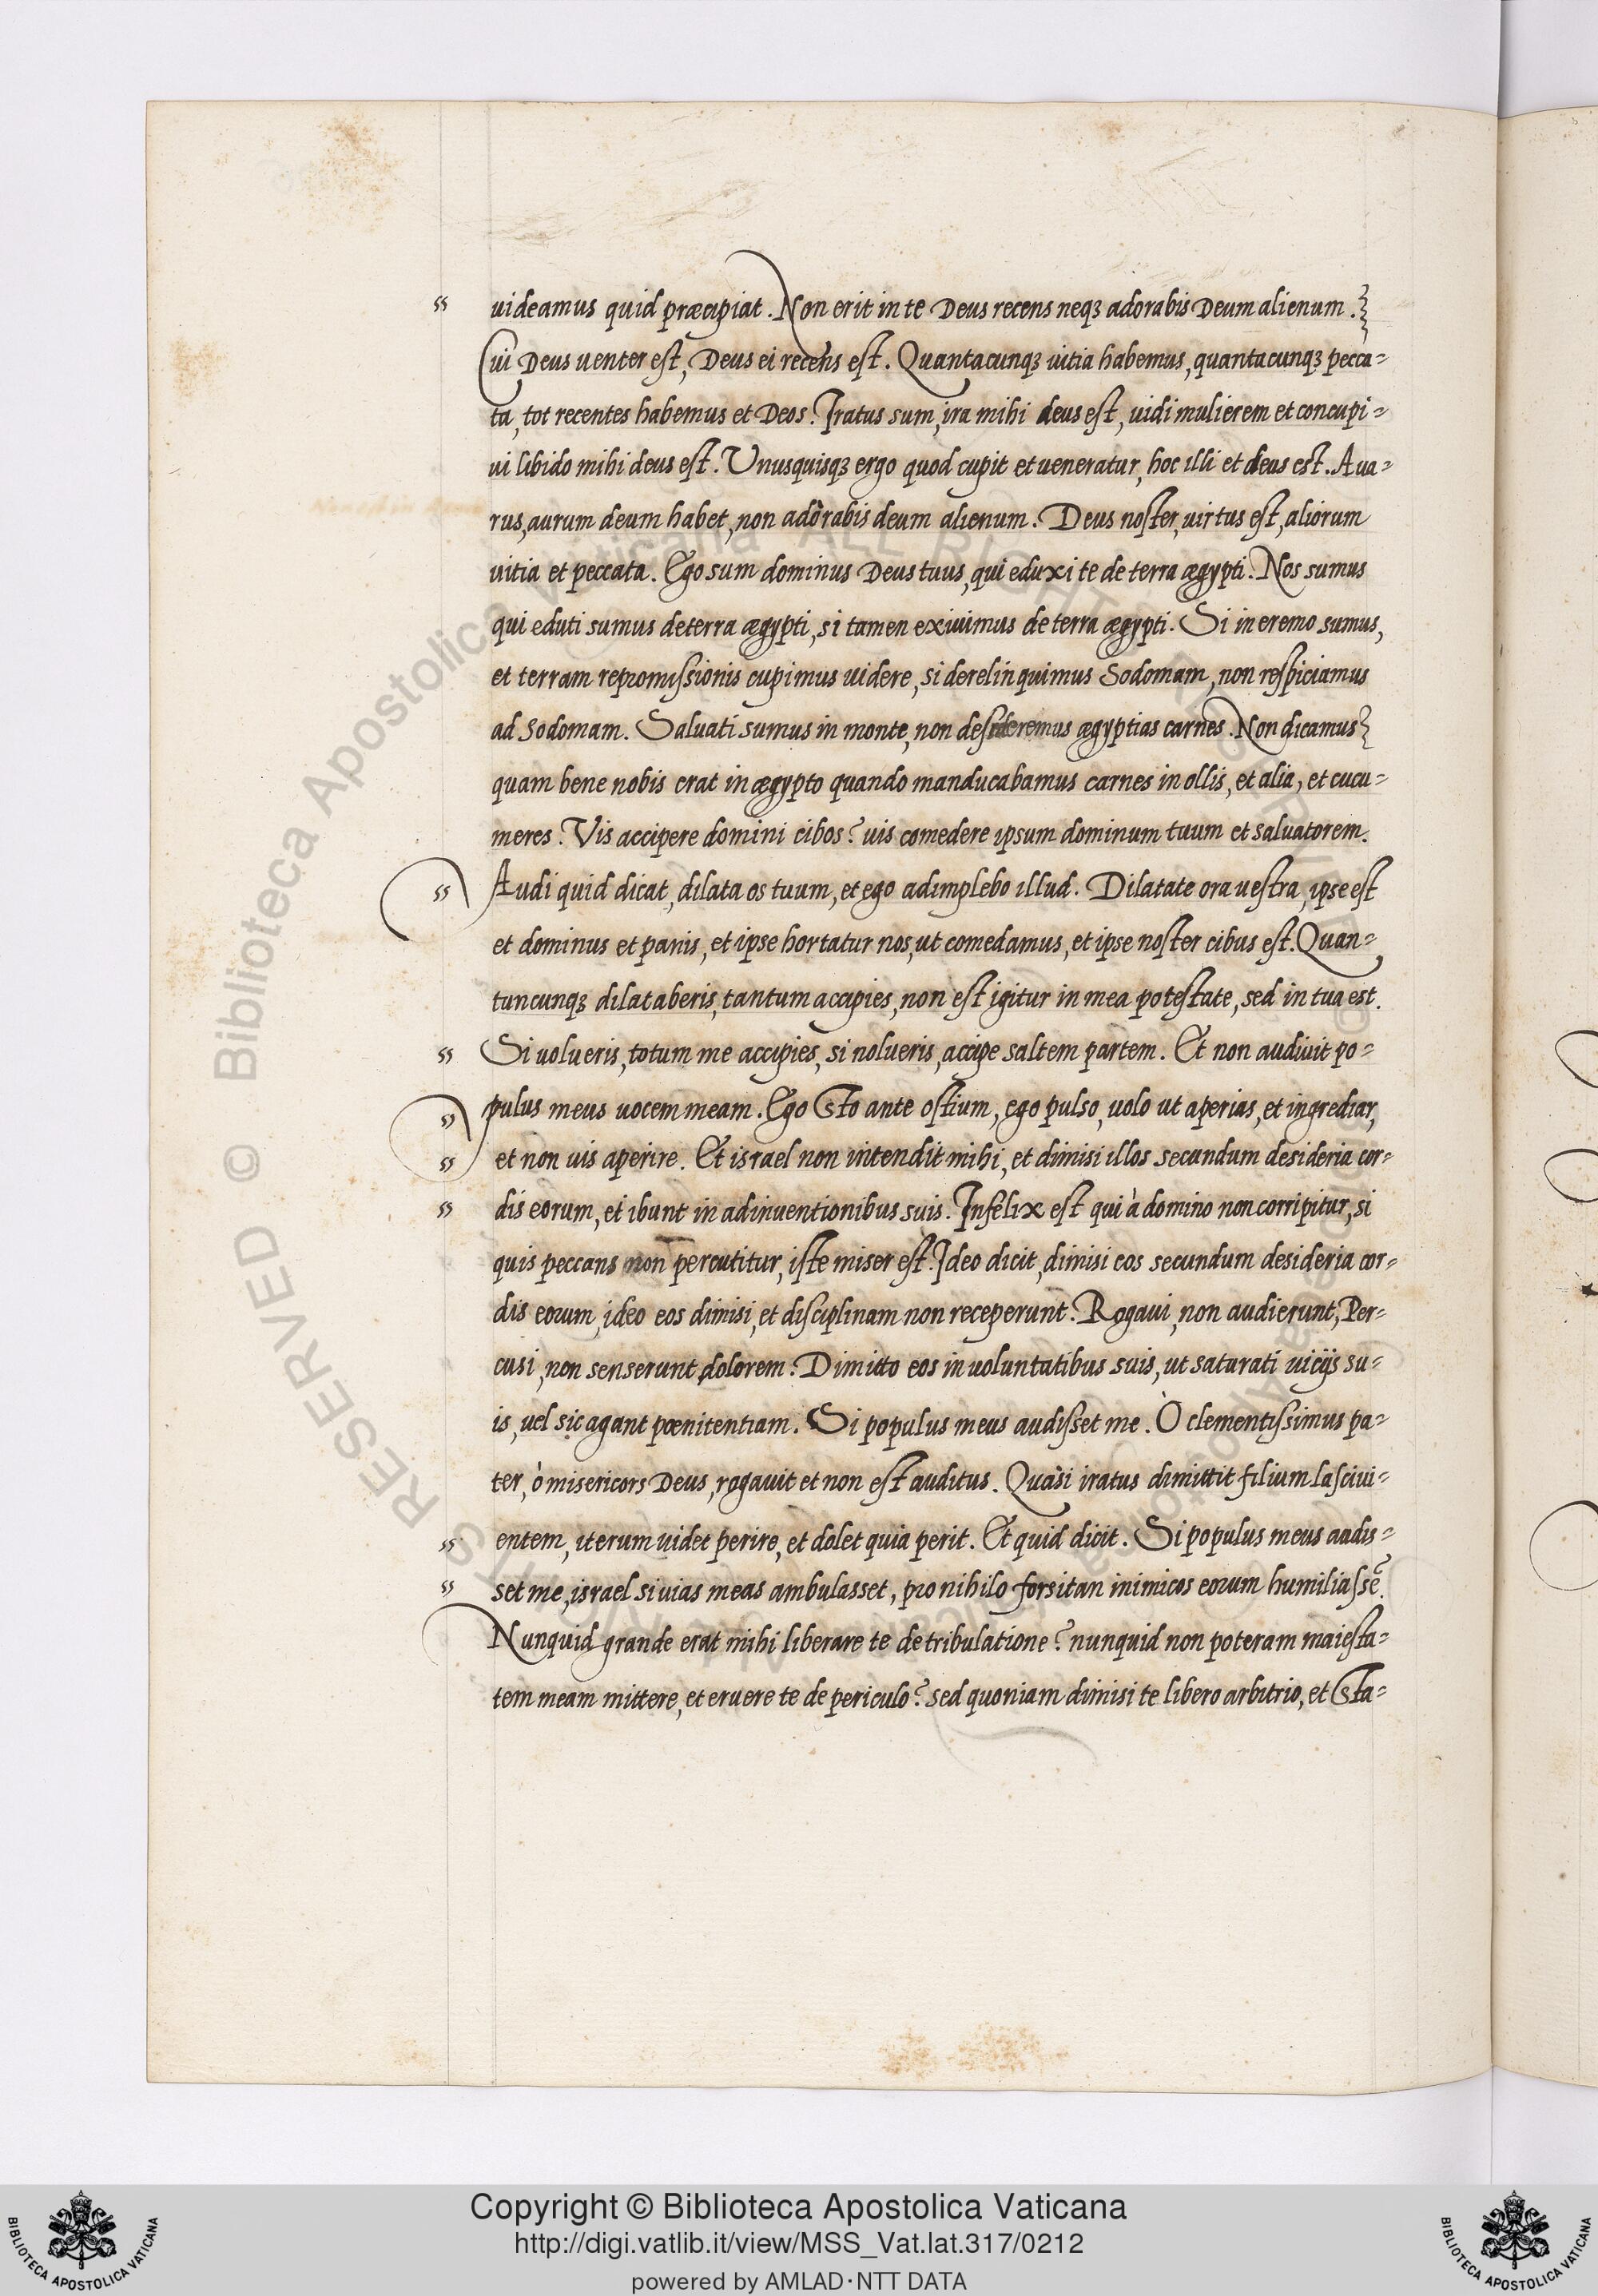 uideamus quid præcipiat. Non erit in te Deus recens neqꝫ adorabis Deum alienum.
Cui Deus uenter est, Deus ei recens est. Quantacunqꝫ uitia habemus, quantacunqꝫ pecca=
ta, tot recentes habemus et Deos. Iratus sum, ira mihi deus est, uidi mulierem et concupi=
ui libido mihi deus est. Vnusquisqꝫ ergo quod cupit et ueneratur, hoc illi et deus est. Aua=
rus, aurum deum habet, non adòrabis deum alienum. Deus noster, uirtus est, aliorum
uitia et peccata. Ego sum dominus Deus tuus, qui eduxi te de terra ægypti. Nos sumus
qui eduti sumus de terra ægypti, si tamen exiuimus de terra ægypti. Si in eremo sumus,
et terram repromissionis cupimus uidere, si derelinquimus Sodomam, non respiciamus
ad Sodomam. Saluati sumus in monte, non desideremus ægyptias carnes. Non dicamus
quam bene nobis erat in ægypto quando manducabamus carnes in ollis, et alia, et cucu=
meres. Vis accipere domini cibos? uis comedere ipsum dominum tuum et saluatorem.
Audi quid dicat, dilata os tuum, et ego adimplebo illud. Dilatate ora uestra, ipse est
et dominus et panis, et ipse hortatur nos, ut comedamus, et ipse noster cibus est. Quan=
tuncunqꝫ dilataberis, tantum accipies, non est igitur in mea potestate, sed in tua est.
Si uolueris, totum me accipies, si nolueris, accipe saltem partem. Et non audiuit po=
pulus meus uocem meam. Ego sto ante ostium, ego pulso, uolo ut aperias, et ingrediar,
et non uis aperire. Et israel non intendit mihi, et dimisi illos secundum desideria cor=
dis eorum, et ibunt in adinuentionibus suis. Infelix est qui à domino non corripitur, si
quis peccans non percutitur, iste miser est. Ideo dicit, dimisi eos secundum desideria cor=
dis eorum, ideo eos dimisi, et disciplinam non receperunt. Rogaui, non audierunt, Per=
cusi, non senserunt dolorem. Dimitto eos in uoluntatibus suis, ut saturati uicijs su=
is, uel sic agant pœnitentiam. Si populus meus audisset me. Ò clementissimus pa=
ter, ò misericors Deus, rogauit et non est auditus. Quasi iratus dimittit filium lasciui=
entem, iterum uidet perire, et dolet quia perit. Et quid dicit. Si populus meus audis=
set me, israel si uias meas ambulasset, pro nihilo forsitan inimicos eorum humiliassē.
Nunquid grande erat mihi liberare te de tribulatione? nunquid non poteram maiesta=
tem meam mittere, et eruere te de periculo? sed quoniam dimisi te libero arbitrio, et sta=
© Biblioteca Apostolica Vaticana ALL RIGHTS RESERVED
Copyright © Biblioteca Apostolica Vaticana
http://digi.vatlib.it/view/MSS_Vat.lat.317/0212
powered by AMLAD·NTT DATA
BIBLIOTECA APOSTOLICA VATICANA
BIBLIOTECA APOSTOLICA VATICANA